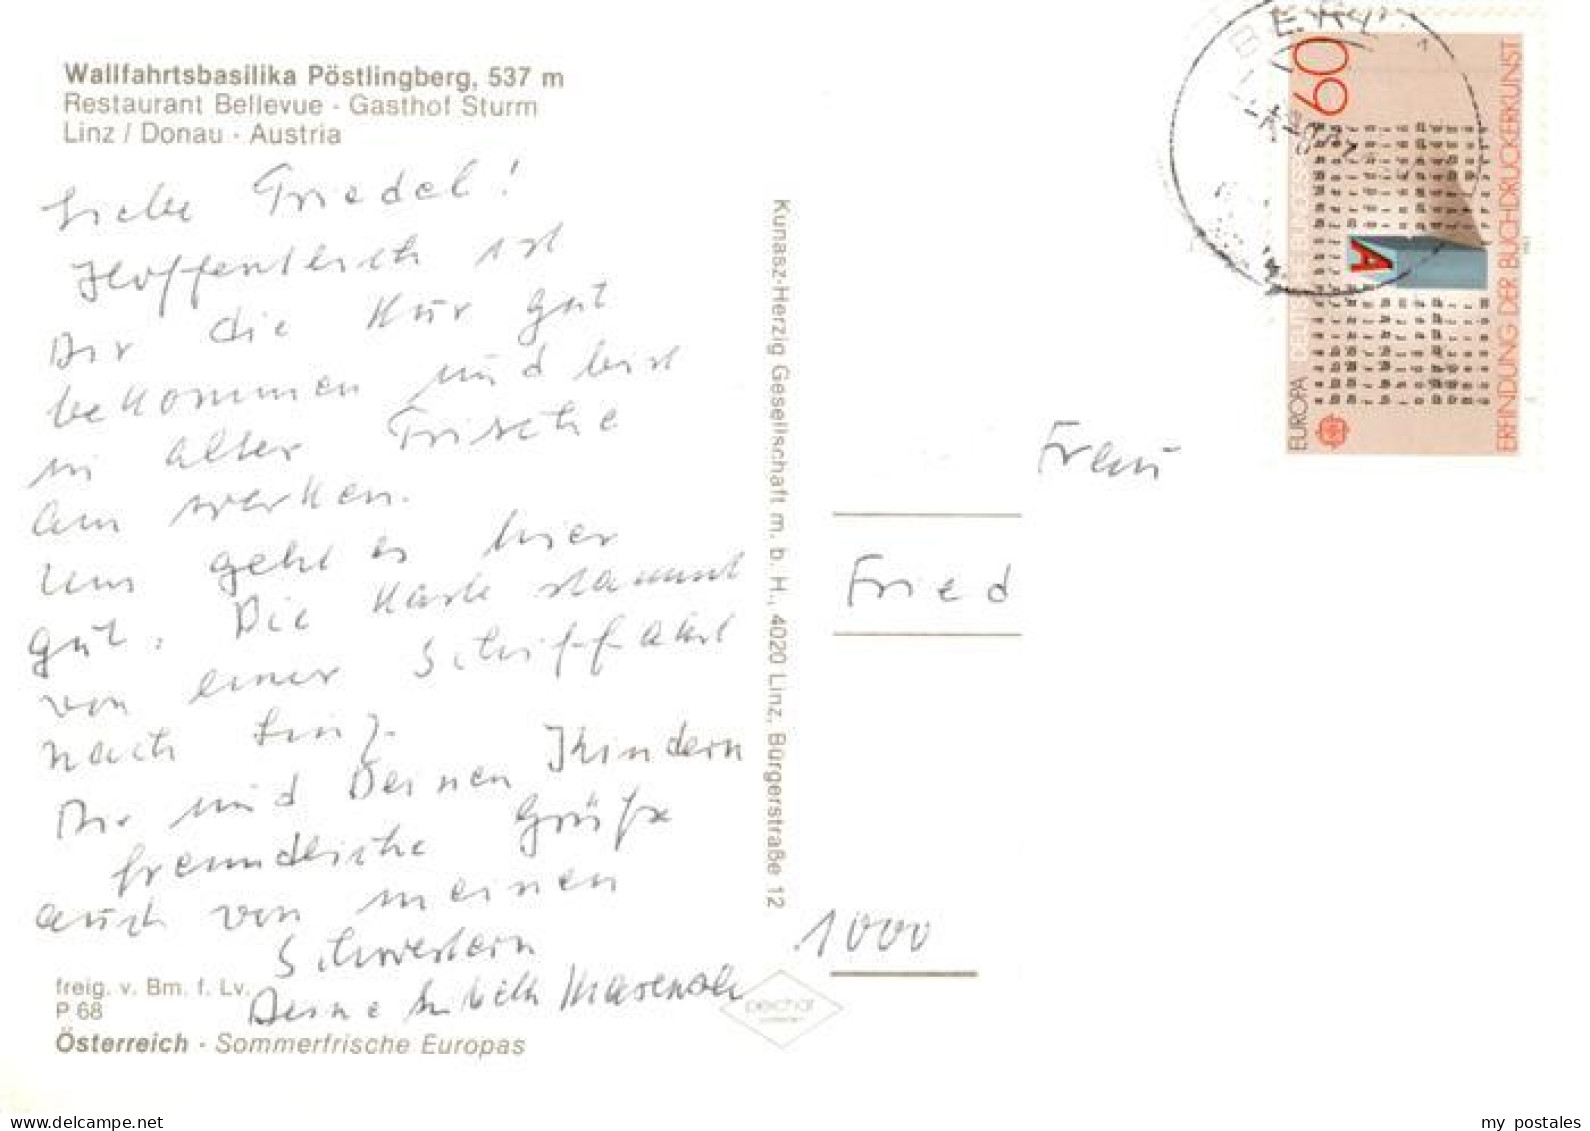 Wallfahrtsbasilika Pöstlingberg, 537 m
Restaurant Bellevue - Gasthof Sturm
Linz / Donau - Austria
Liebe Friedel!
Hoffentlich ist
Dir die Kur gut
bekommen und bist
in alter Frische
am werken.
Uns geht es hier
gut. Die Karte stammt
von einer Schiffahrt
nach Linz.
Dir und Deinen Kindern
freundliche Grüße
auch von meinen
Schwestern
Deine
freig. v. Bm. f. Lv.
P 68
Österreich - Sommerfrische Europas
Kunasz-Herzig Gesellschaft m. b. H., 4020 Linz, Bürgerstraße 12
peichär
Frau
Fried
1000
BERL
60
EUROPA DEUTSCHE BUNDESPOST
A
ERFINDUNG DER BUCHDRUCKERKUNST
1983
my_postales